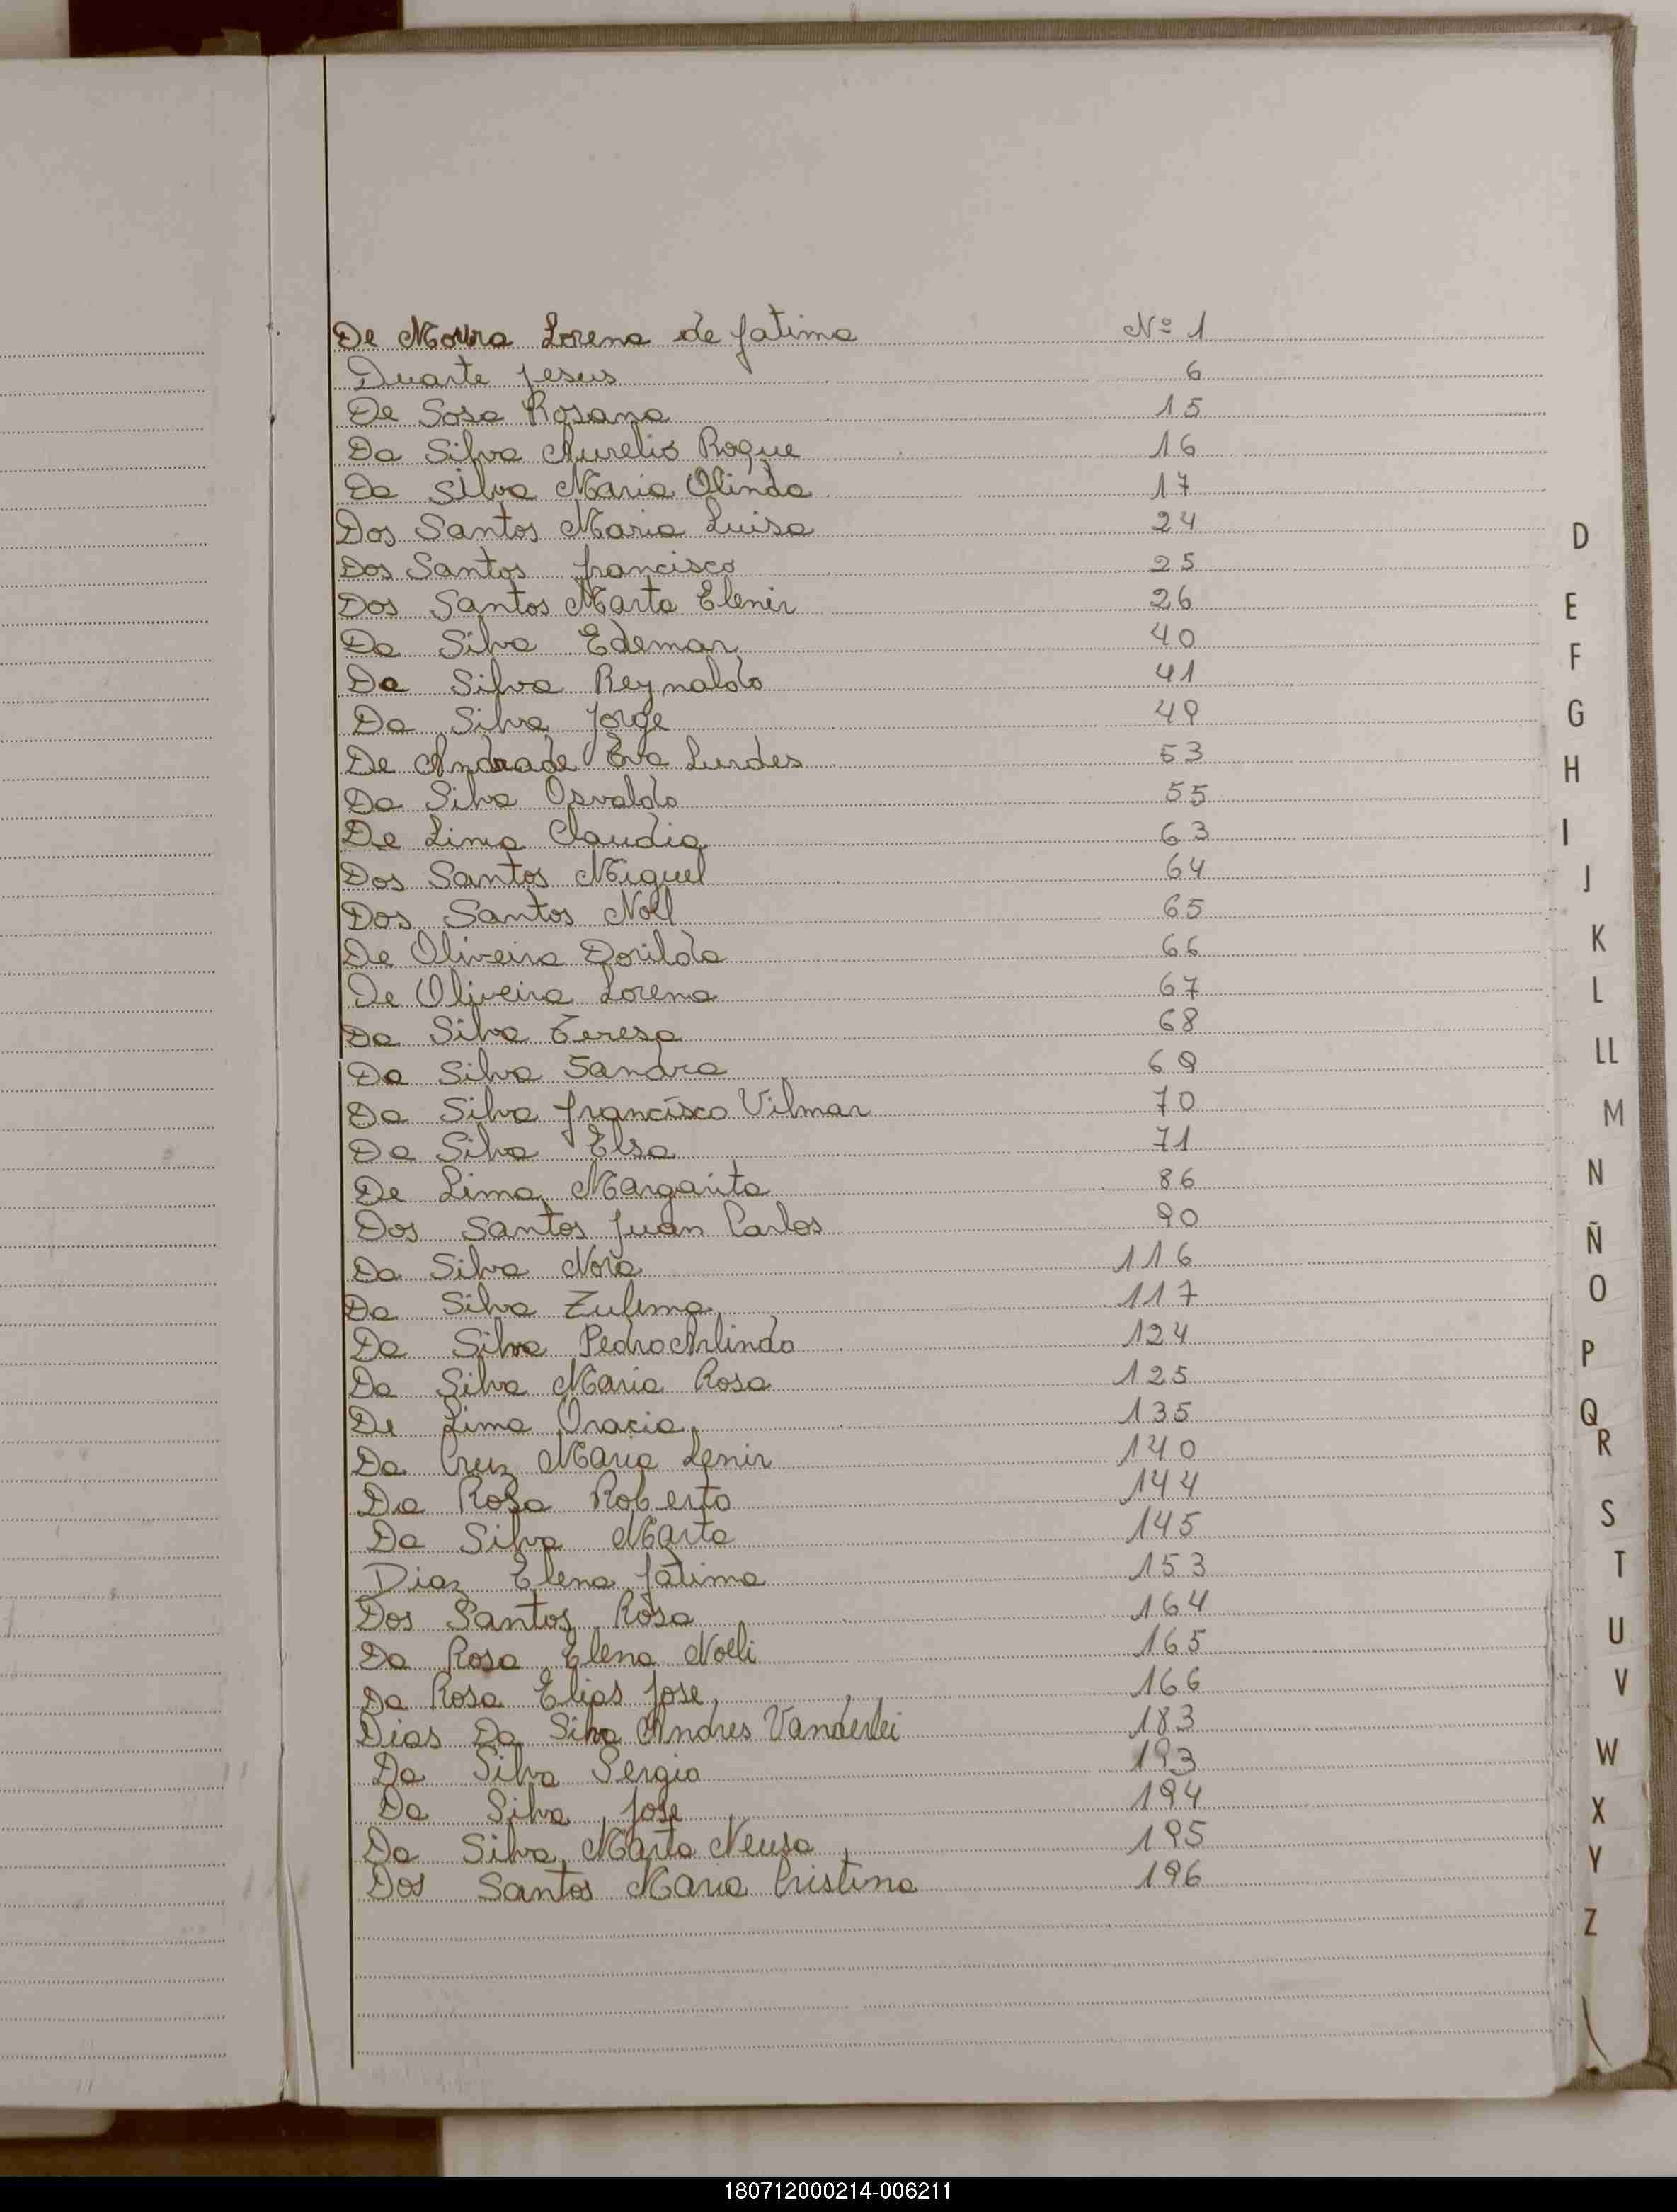 De Moura Lorena de fatima Nº 1
Duarte Jesus 6
De Sosa Rosana 15
Da Silva Aurelio Roque 16
Da Silva Maria Olinda 17
Dos Santos Maria Luisa 24
Dos Santos francisco 25
Dos Santos Marta Elenir 26
Da Silva Edemar 40
Da Silva Reynaldo 41
Da Silva Jorge 49
De Andrade Eva Lurdes 53
Da Silva Osvaldo 55
De Lima Claudia 63
Dos Santos Miguel 64
Dos Santos Noll 65
De Oliveira Dorilda 66
De Oliveira Lorena 67
Da Silva Teresa 68
Da Silva Sandra 69
Da Silva francisco Vilmar 70
Da Silva Elsa 71
De Lima Margarita 86
Dos Santos Juan Carlos 90
Da Silva Nora 116
Da Silva Zulema 117
Da Silva Pedro Arlindo 124
Da Silva Maria Rosa 125
De Lima Oracia 135
Da Cruz Maria Lenir 140
Da Rosa Roberto 144
Da Silva Marta 145
Diaz Elena fatima 153
Dos Santos Rosa 164
Da Rosa Elena Noeli 165
Da Rosa Elias Jose 166
Dias Da Silva Andres Vanderlei 183
Da Silva Sergio 193
Da Silva Jose 194
Da Silva Marta Neusa 195
Dos Santos Maria Cristina 196
D
E
F
G
H
I
J
K
L
LL
M
N
Ñ
O
P
Q
R
S
T
U
V
W
X
Y
Z
180712000214-006211